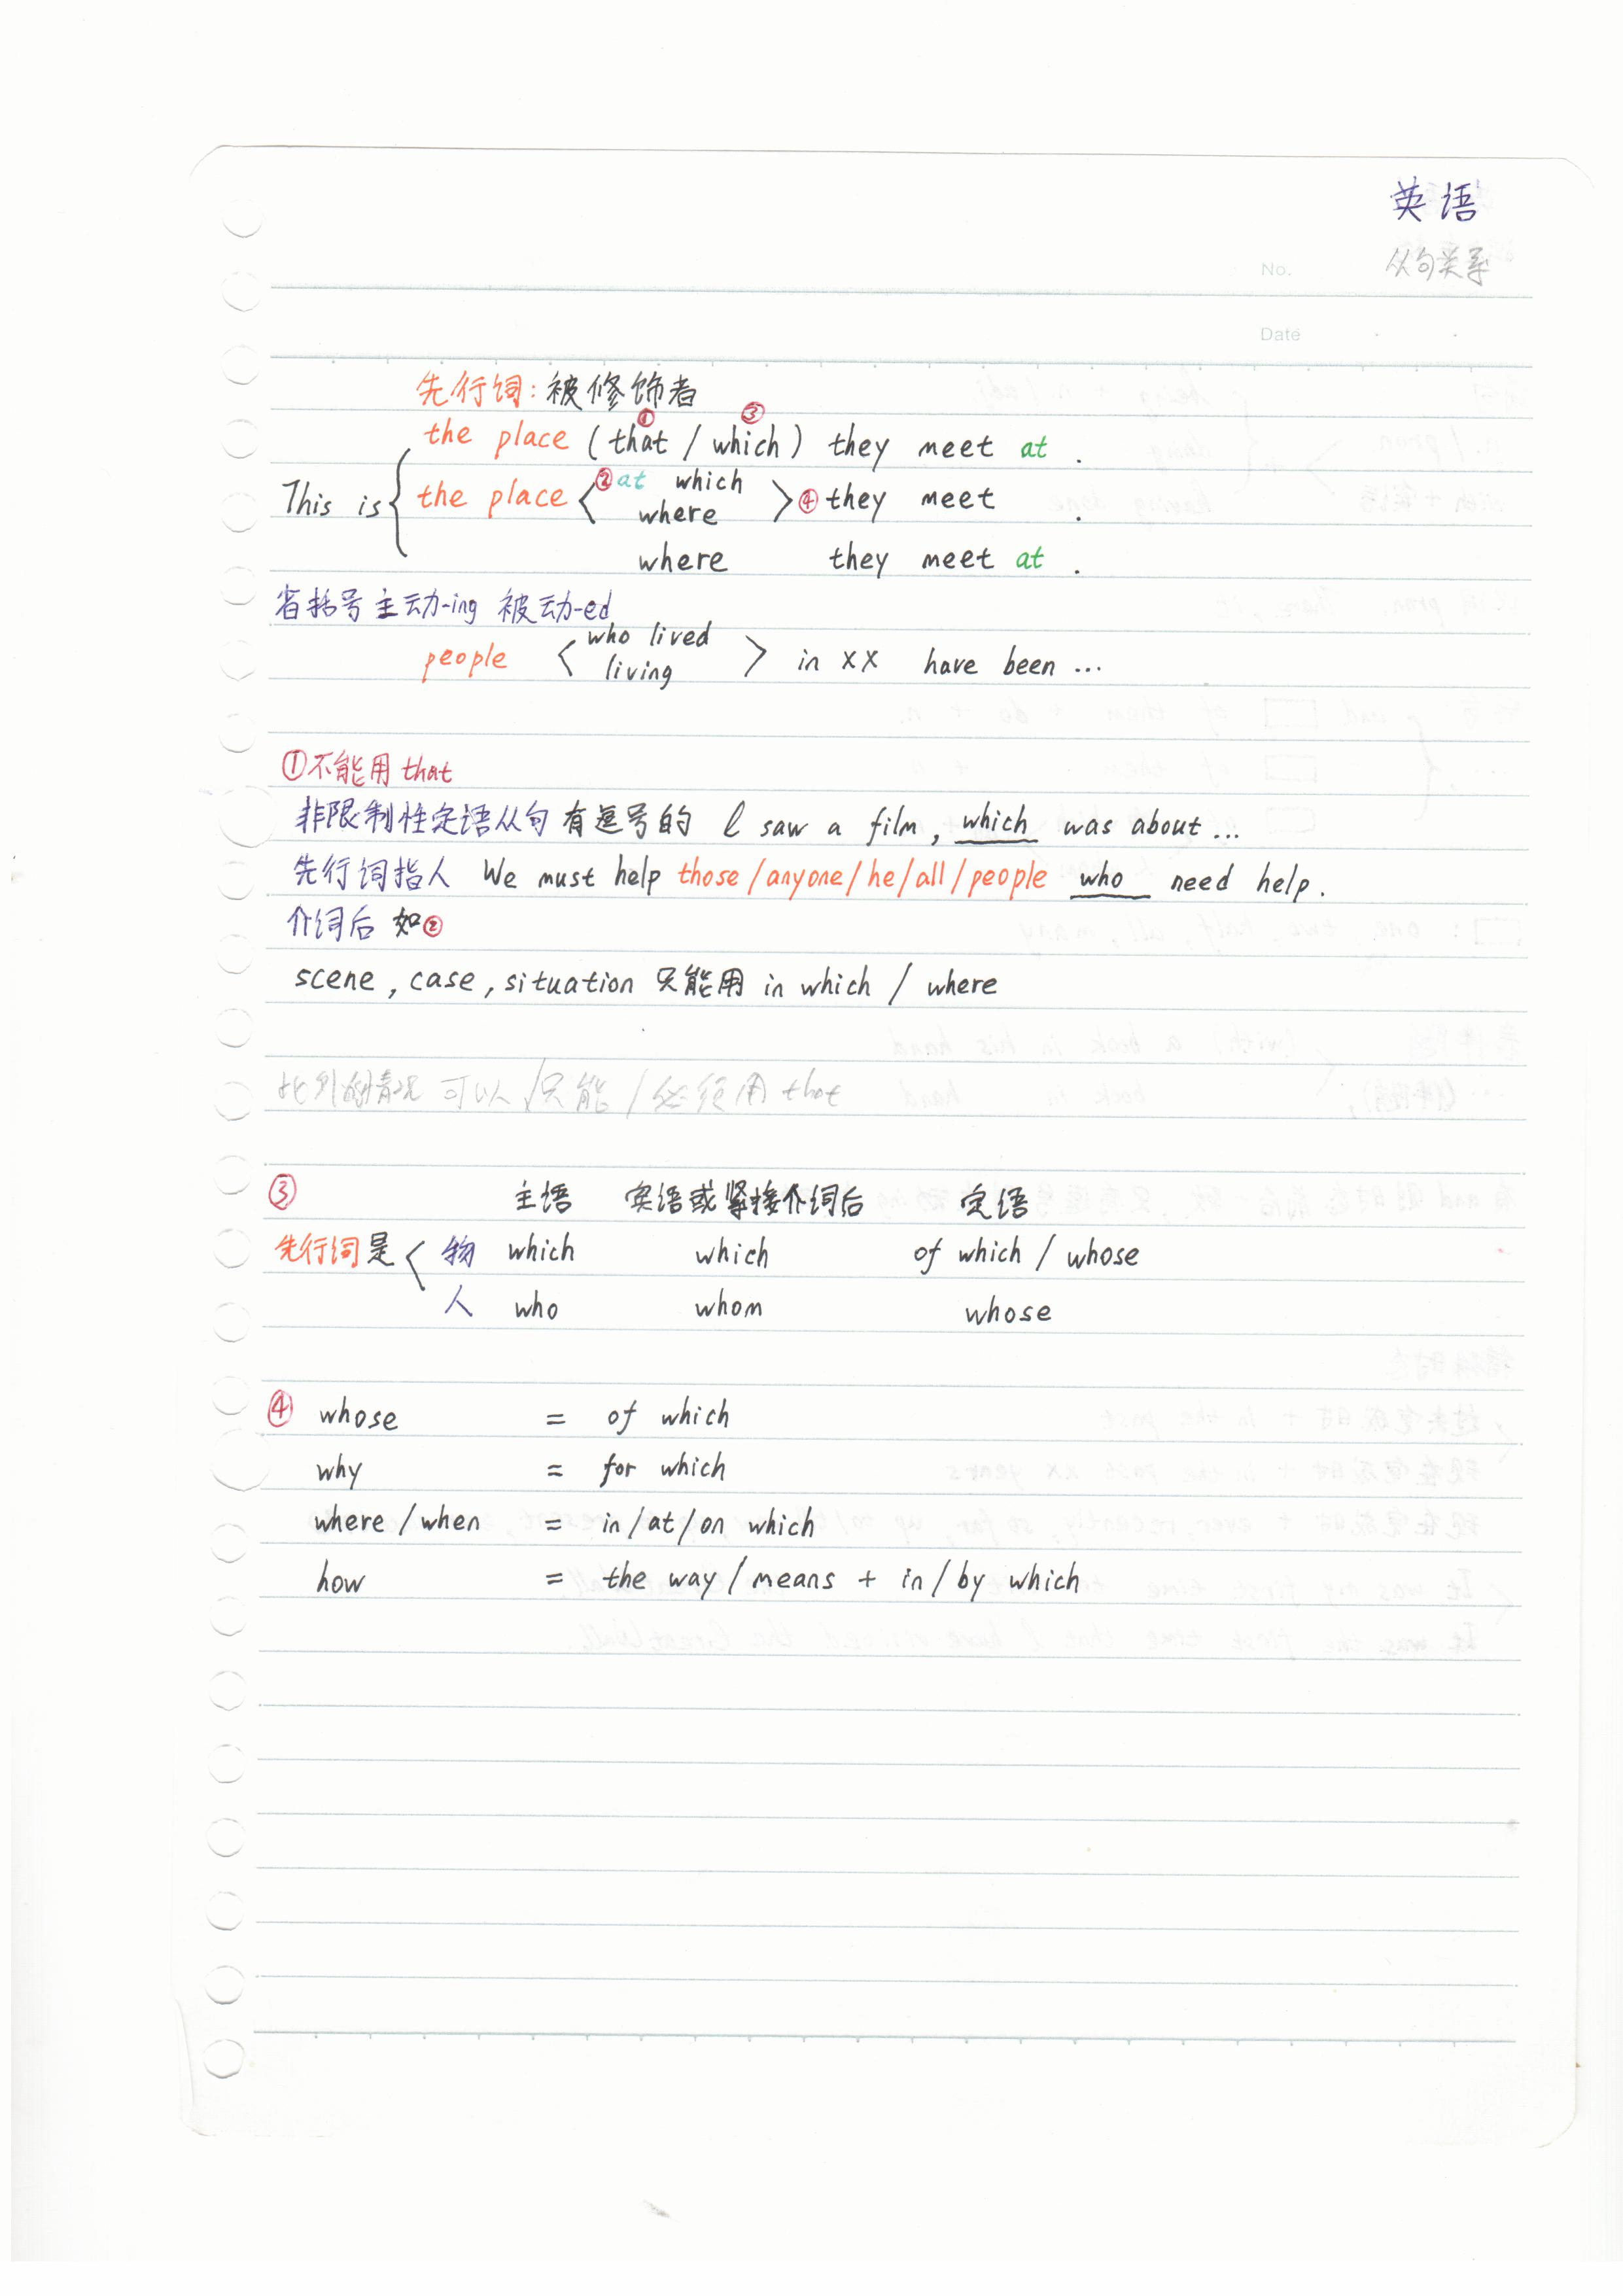 英语
No. 从句关系
Date
先行词: 被修饰者
① ③
the place (that / which) they meet at .
This is { the place < ② at which > ④ they meet .
where
where they meet at .
省括号主动-ing 被动-ed
people < who lived > in XX have been ...
living
①不能用 that
非限制性定语从句 有逗号的 I saw a film, which was about ...
先行词指人 We must help those/anyone/he/all/people who need help.
介词后 如②
scene, case, situation 只能用 in which / where
此外的情况 可以/只能/必须用 that
③ 主语 宾语或紧接介词后 定语
先行词是 < 物 which which of which / whose
人 who whom whose
④ whose = of which
why = for which
where / when = in/at/on which
how = the way/means + in/by which